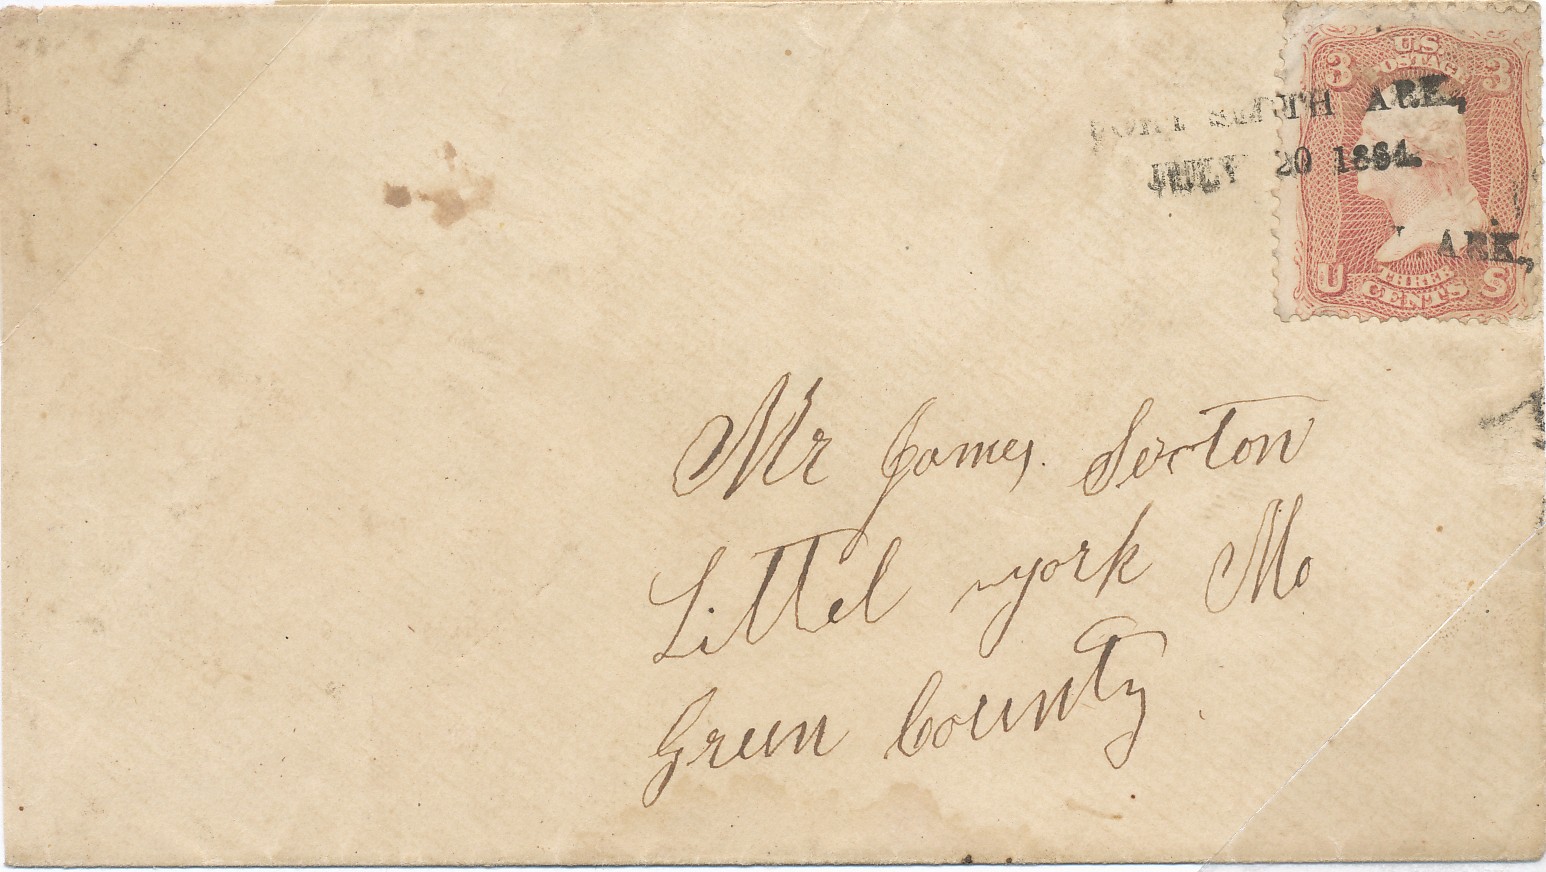 U.S.
POSTAGE
3 3
FORT SMITH ARK.,
JULY 20 1864.
ARK,
U S
THREE
CENTS
Mr James. Sexton
Littel york Mo
Green County